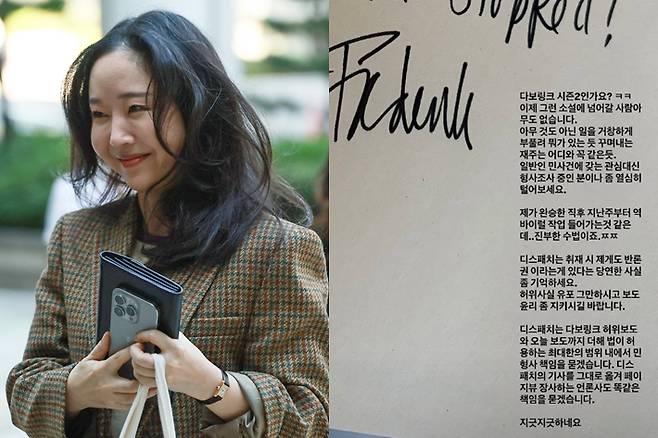 stopped!
Frederik
다보링크 시즌2인가요? ㅋㅋ
이제 그런 소설에 넘어갈 사람아
무도 없습니다.
아무 것도 아닌 일을 거창하게
부풀려 뭐가 있는 듯 꾸며내는
재주는 어디와 꼭 같은듯.
일반인 민사건에 갖는 관심대신
형사조사 중인 분이나 좀 열심히
털어보세요.
제가 완승한 직후 지난주부터 역
바이럴 작업 들어가는것 같은
데..진부한 수법이죠.ㅉㅉ
디스패치는 취재 시 제게도 반론
권 이라는게 있다는 당연한 사실
좀 기억하세요.
허위사실 유포 그만하시고 보도
윤리 좀 지키시길 바랍니다.
디스패치는 다보링크 허위보도
와 오늘 보도까지 더해 법이 허
용하는 최대한의 범위 내에서 민
형사 책임을 묻겠습니다. 디스
패치의 기사를 그대로 옮겨 페이
지뷰 장사하는 언론사도 똑같은
책임을 묻겠습니다.
지긋지긋하네요